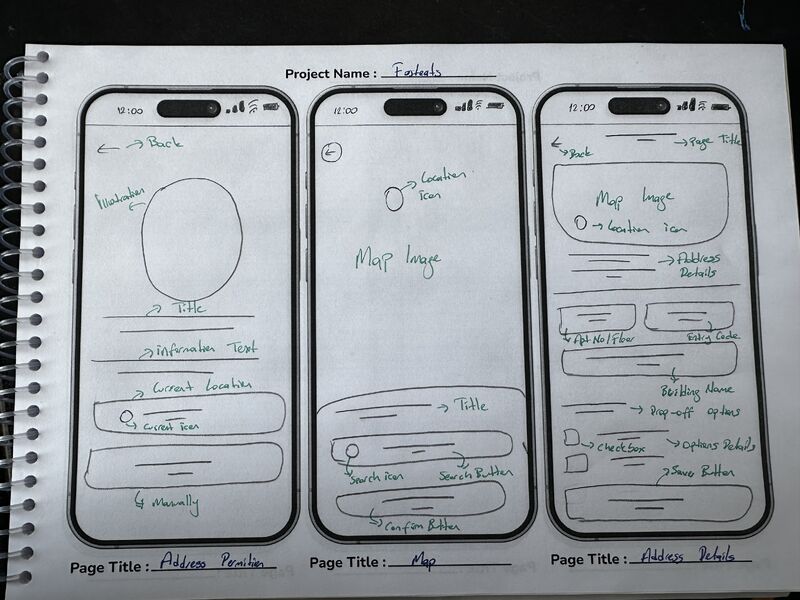 Project Name : Fasteats
12:00
Back
Illustration
Title
Information Text
Current Location
Current icon
Manually
Page Title : Address Permition
12:00
Location
icon
Map Image
Title
Search icon
Search Button
Confirm Button
Page Title : Map
12:00
Page Title
Back
Map Image
Location icon
Address
Details
Apt No/Floor
Entry Code
Building Name
Drop-off options
checkbox
Options Details
Save Button
Page Title : Address Details